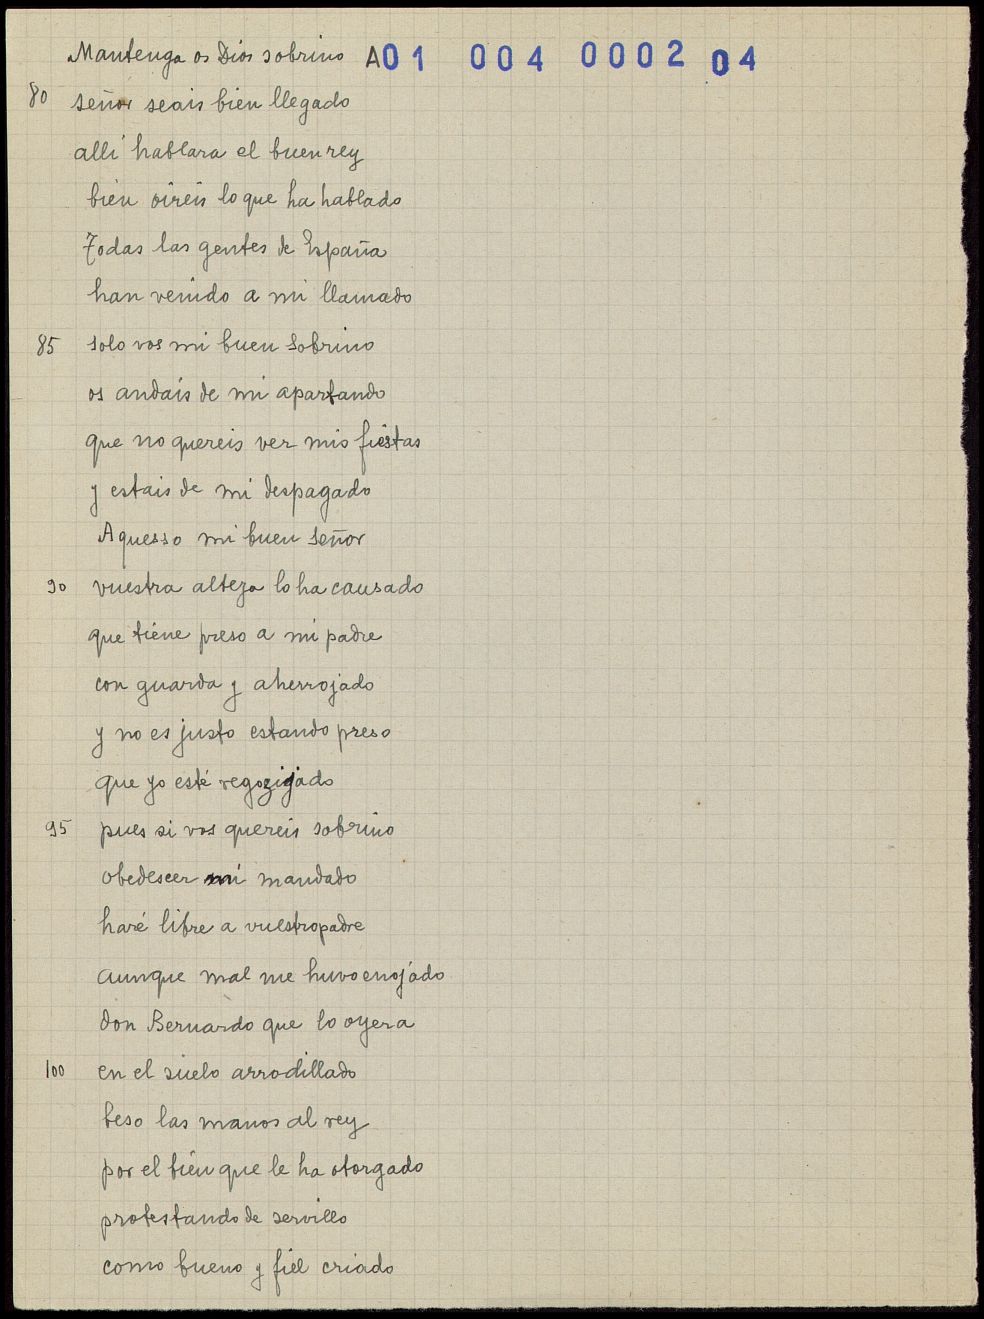 Mantenga os Dios sobrino A01 004 0002 04
80 señor seais bien llegado
allí hablara el buen rey
bien oireis lo que ha hablado
Todas las gentes de España
han venido a mi llamado
85 solo vos mi buen sobrino
os andais de mi apartando
que no quereis ver mis fiestas
y estais de mí despagado
Aquesso mi buen señor
90 vuestra alteza lo ha causado
que tiene preso a mi padre
con guarda y aherrojado
y no es justo estando preso
que yo esté regozijado
95 pues si vos quereis sobrino
obedescer mi mandado
haré libre a vuestro padre
aunque mal me huvo enojado
don Bernardo que lo oyera
100 en el suelo arrodillado
beso las manos al rey
por el bien que le ha otorgado
protestando de servillo
como bueno y fiel criado